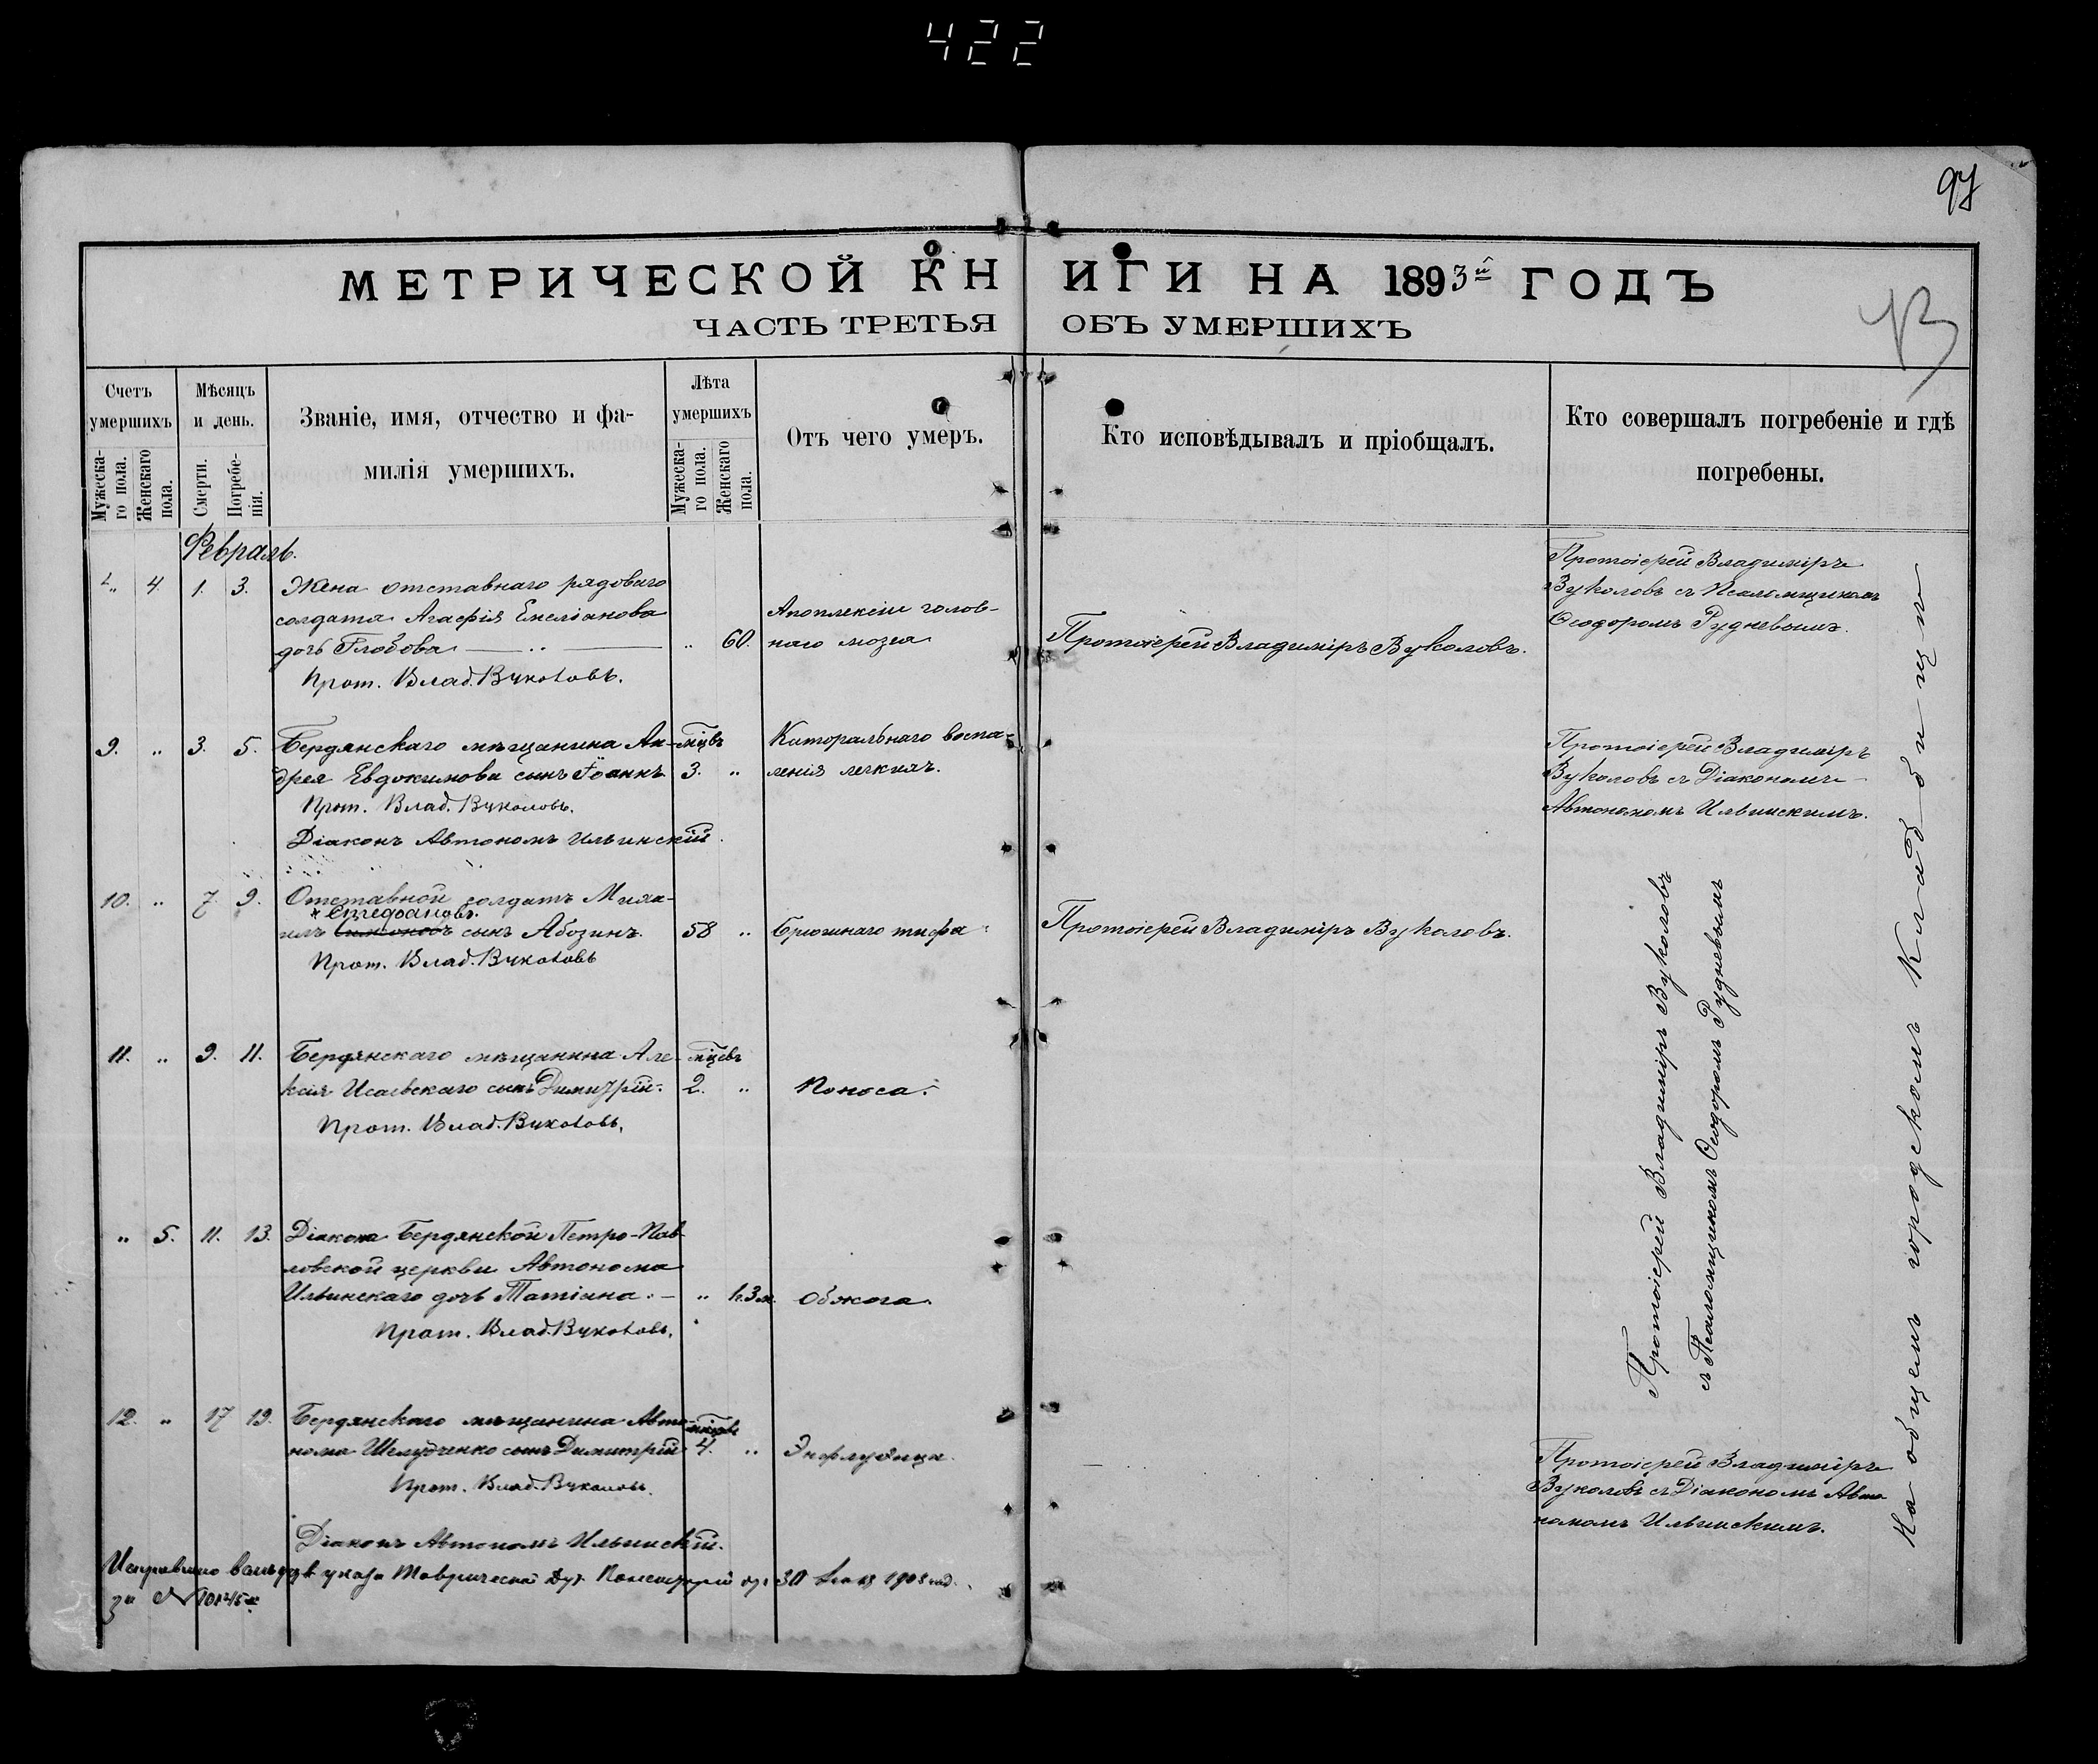 422
97
МЕТРИЧЕСКОЙ КНИГИ НА 1893й ГОДЪ
ЧАСТЬ ТРЕТЬЯ ОБЪ УМЕРШИХЪ
Счетъ умершихъ
Мужеска-го пола.
Женскаго пола.
Мѣсяцъ и день.
Смерти.
Погребе-нія.
Званіе, имя, отчество и фа-
милія умершихъ.
Лѣта умершихъ
Мужеска-го пола.
Женскаго пола.
Отъ чего умеръ.
Кто исповѣдывалъ и пріобщалъ.
Кто совершалъ погребеніе и гдѣ
погребены.
Февраль.
" 4. 1. 3. Жена отставнаго рядоваго
солдата Агафія Емеліанова
дочь Глобова " 60.
Апоплексіи голов-
наго мозга
Протоіерей Владиміръ Вуколовъ.
Протоіерей Владиміръ
Вуколовъ съ Псаломщикомъ
Ѳеодоромъ Рудневымъ.
Прот. Влад. Вуколовъ.
9. " 3. 5. Бердянскаго мѣщанина Ан-
дрея Евдокимова сынъ Іоаннъ
мцвъ
3. "
Каторальнаго воспа-
ленія легкихъ.
Протоіерей Владиміръ
Вуколовъ съ Діакономъ
Автономомъ Ильинскимъ.
Прот. Влад. Вуколовъ.
Діаконъ Автономъ Ильинскій.
10. " 7. 9. Отставной солдатъ Миха-
х Стефановъ.
илъ сынъ Абозинъ. 58 " Брюшнаго тифа
Протоіерей Владиміръ Вуколовъ.
Прот. Влад. Вуколовъ
11. " 9. 11. Бердянскаго мѣщанина Але-
ксія Исаевскаго сынъ Димитрій.
мцевъ
2. " Поноса.
Прот. Влад. Вуколовъ.
" 5. 11. 13. Діакона Бердянской Петро-Пав-
ловской церкви Автонома
Ильинскаго дочь Татіана. " 1г.3м. Обжога.
Прот. Влад. Вуколовъ.
Протоіерей Владиміръ Вуколовъ
съ Псаломщикомъ Ѳеодоромъ Рудневымъ
12. " 17 19. Бердянскаго мѣщанина Авто-
нома Шелудченко сынъ Димитрій 4. "
Прот. Влад. Вуколовъ.
Діаконъ Автономъ Ильинскій.
Протоіерей Владиміръ
Вуколовъ съ Діакономъ Авто-
номомъ Ильинскимъ.
На общемъ городскомъ кладбищѣ
Исправлено указа Таврической Дух. Консисторіи 30
за №